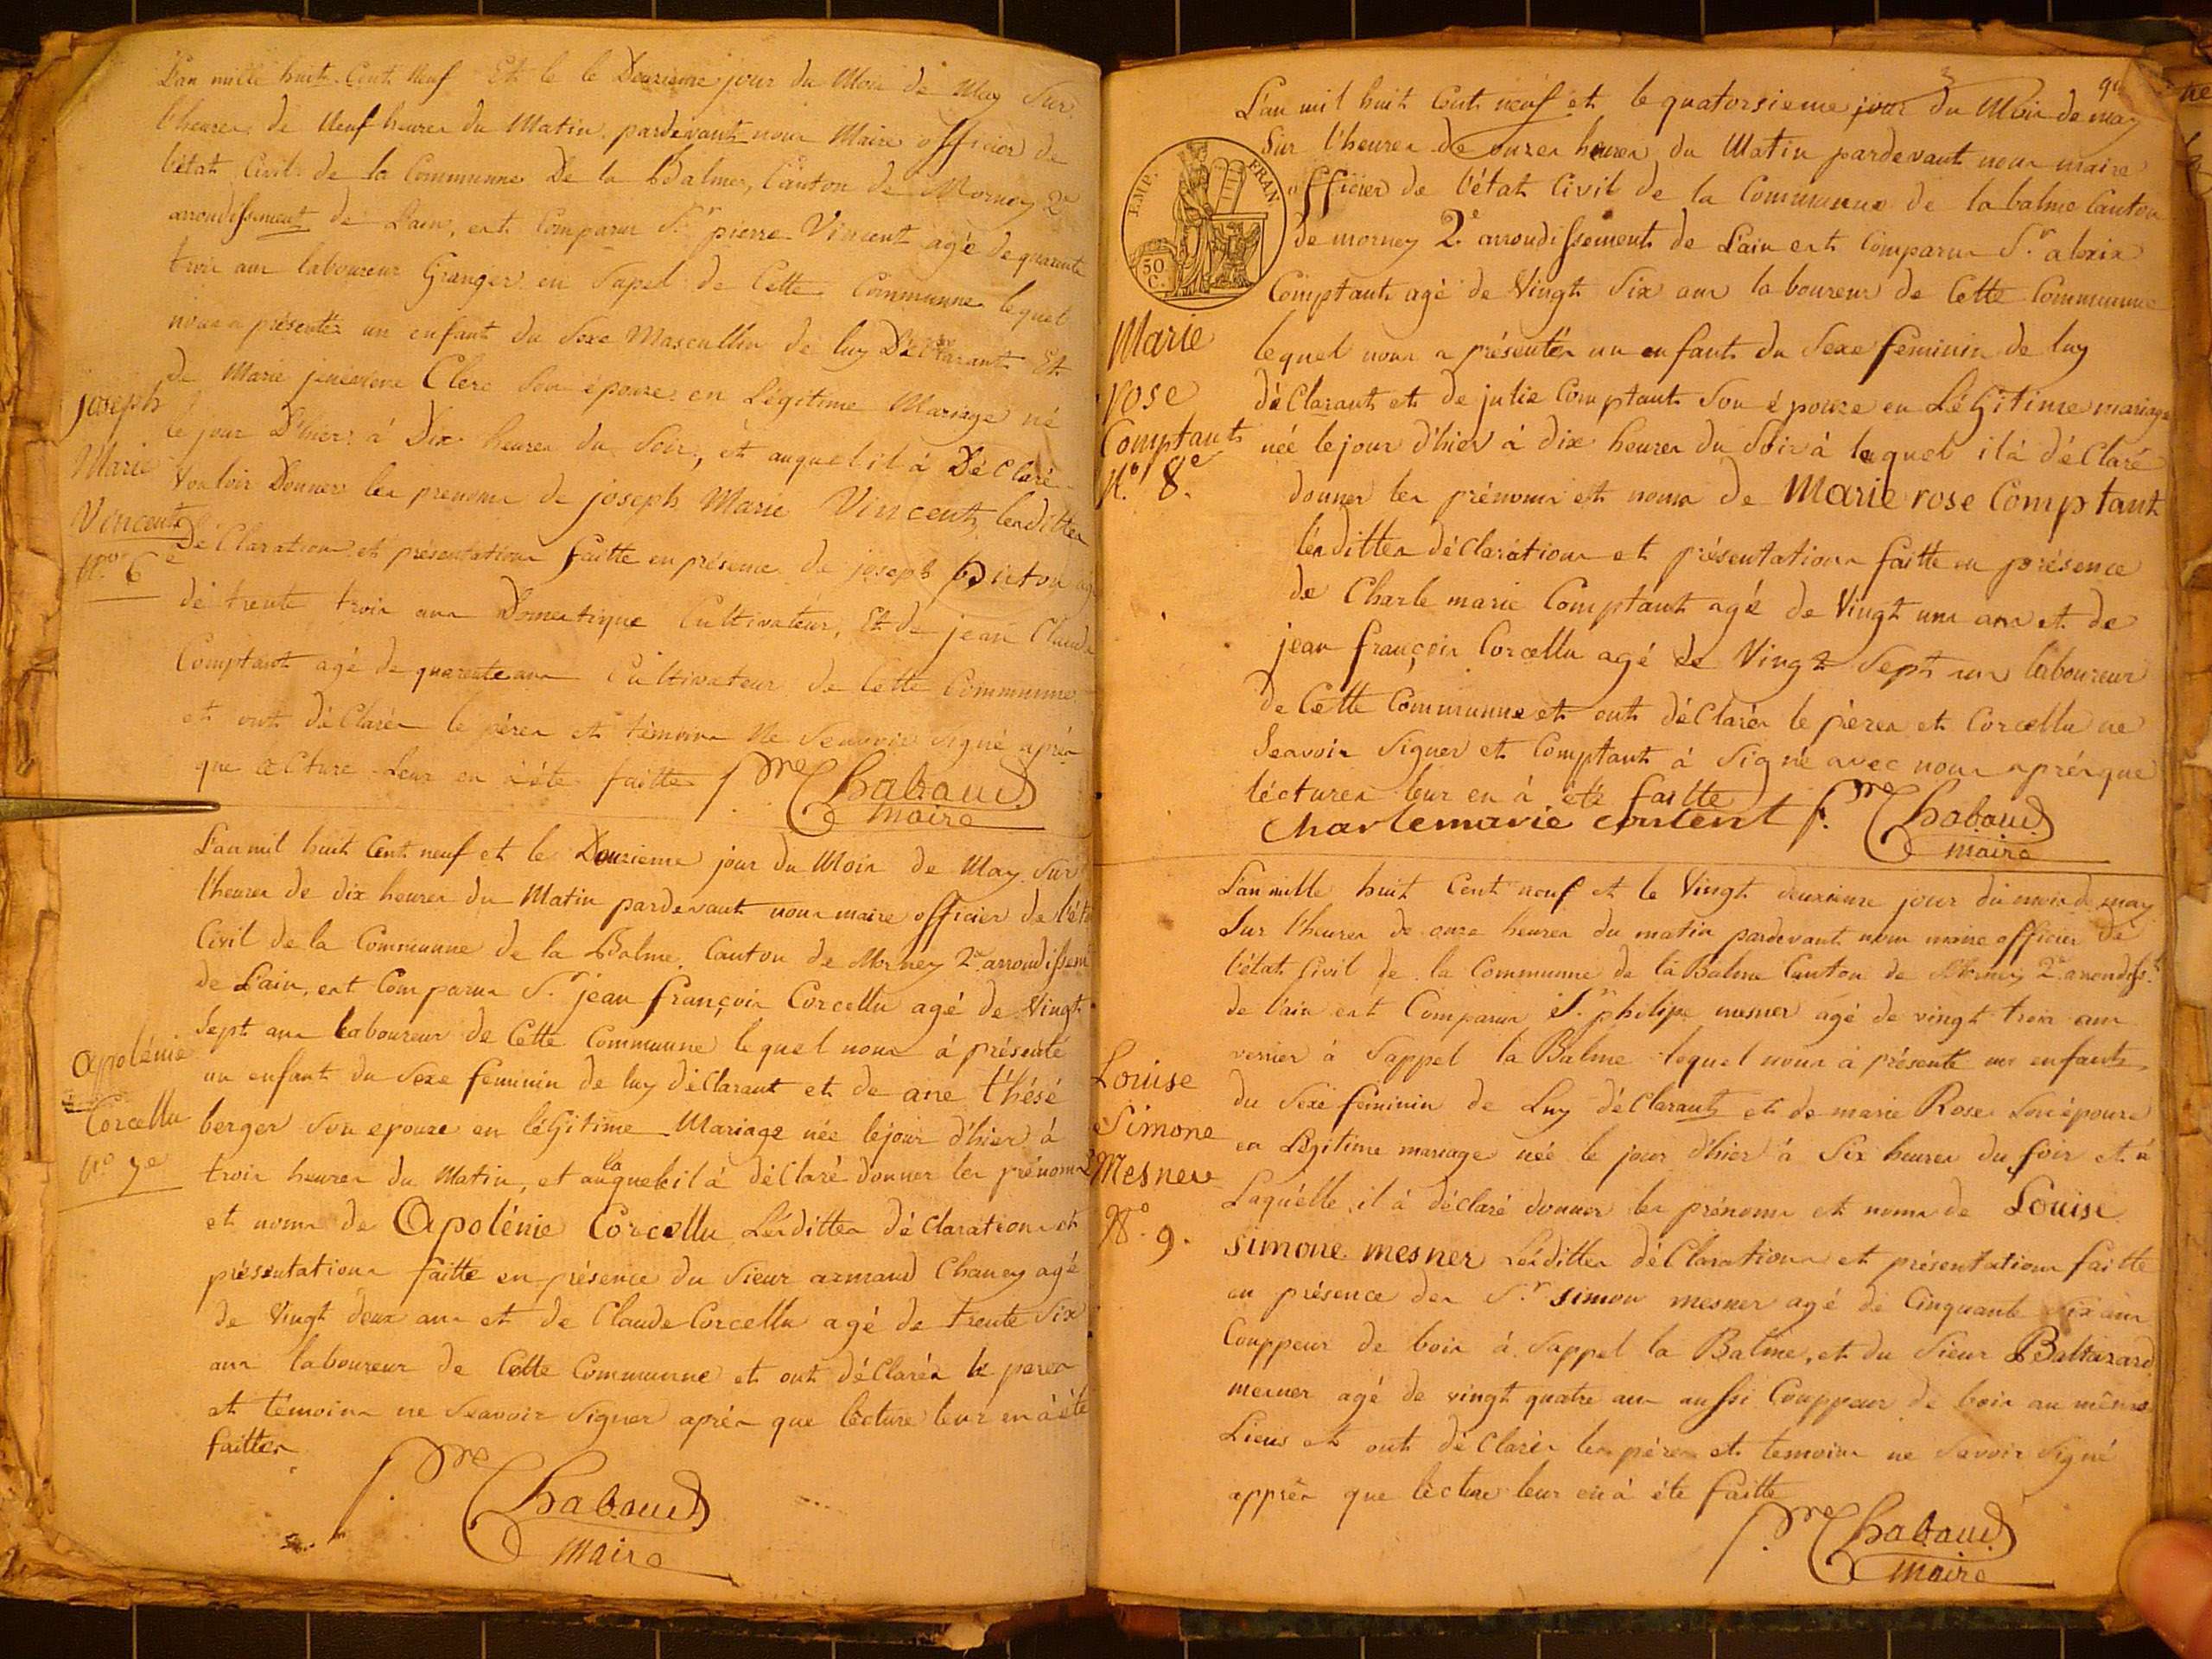 L'an mille huit Cent Neuf Et le le Douzieme jour du Mois de May Sur
l'heures de Neuf heures du Matin pardevant nous Maire officier de
l'état Civil de la Communne De la Balmes, Canton de Mornay 2e
arrondissement de L'ain, est Comparus Sr. pierre Vincent agé de quarante
trois ans laboureur Granger en Sapel de Cette Communne lequel
nous a présentés un enfant du Sexe Mascullin de luy Déclarant Et
de Marie jenevieve Clerc Son épouzes en Légitime Mariage né
le jour D'hier à Dix heures du Soir, et auquel il à Déclaré
Vouloir Donner les prenoms de joseph Marie Vincent, lesdittes
Déclarations et présentations faitte en présence de joseph
de trente trois ans Domestique Cultivateur, Et de jean Claude
Comptant agé de quarente ans Cultivateur de Cette Communne
et ont déClarés le péres et témoins Ne Seavoir Signé après
que lecture Leur en à été faittes Pre Chabaud
maire
joseph
Marie
Vincent
No. 6e
L'an mil huit Cent neuf et le Douzieme jour du Mois de May Sur
l'heures de dix heures du Matin pardevant nous maire officier de l'état
Civil de la Communne de la Balme Canton de Mornay 2e arrondissemt
de L'ain, est Comparus Sr. jean françois Corcellu agé de Vingt
Sept ans laboureur de Cette Communne lequel nous à présenté
un enfant du Sexe feminin de luy déClarant et de ane thésé
berger Son epouze en léGitime Mariage née lejour d'hier à
trois heures du Matin, et auquel la il à déClaré donner les prénoms
et noms de Apolénie Corcellu Lesdittes déClarations et
présentations faitte en présence du Sieur armand Chaney agé
de Vingt deux ans et de Claude Corcellu agé de trente Six
ans laboureur de Cette Communne et ont déClarés le peres
et témoins ne Seavoir Signer après que lécture leur en à été
faittes
Pre Chabaud
Maire
Apolénie
Corcellu
No 7e
L'an mil huit Cent neuf et le quatorsieme jour du Mois de may
Sur l'heures de onzes heures du Matin pardevant nous maire
officier de l'état Civil de la Communne de la balme Canton
de mornay 2e arrondissement de L'ain est Comparus Sr. alexis
Comptant agé de Vingt Six ans laboureur de Cette Communne
lequel nous a présentés un enfant du Sexe feminin de luy
déClarant et de julie Comptant Son épouze en LéGitime mariage
née lejour d'hier à dix heures du Soir à laquel il à déClaré
donner les prénoms et noms de Marie rose Comptant
lesdittes déclarations et présentations faitte en présence
de Charle marie Comptant agé de Vingt uns ans et de
jean françois Corcellu agé de Vingt Sept ans laboureur
de Cette Communne et ont déClarés le pères et Corcellu ne
Seavoir Signer et Comptant à Signé avec nous aprèsque
léctures leur en à été faitte
Charlemarie contemt Pre Chabaud
maire
EMP. FRAN
50
C.
Marie
rose
Comptant
No. 8e
L'an mille huit Cent neuf et le Vingt deuxieme jour du mois de may
Sur l'heures de onze heures du matin pardevant nous maire officier de
l'état Civil de la Communne de la Balme Canton de Mornay 2e arrondisst
de l'ain est Comparus Sr. philipe mesner agé de vingt trois ans
verrier à Sappel la Balme lequel nous à présenté un enfant
du Sexe féminin de Luy déClarant et de marie Rose Son épouze
en Légitime mariage née le jour d'hier à Six heures du soir et à
Laquélle il à déclaré donner les prénoms et noms de Louise
Simone mesner Lesdittes déClarations et présentations faitte
en présence des Sr Simon mesner agé de Cinquante Six ans
Couppeur de bois à Sappel la Balme, et du Sieur Baltazard
mesner agé de vingt quatre ans aussi Couppeur de bois au même
Lieus et ont déClarés les péres et temoins ne Savoir Signé
apprès que lecture leur en à été faitte
Pre Chabaud
Maire
Louise
Simone
Mesner
No. 9.